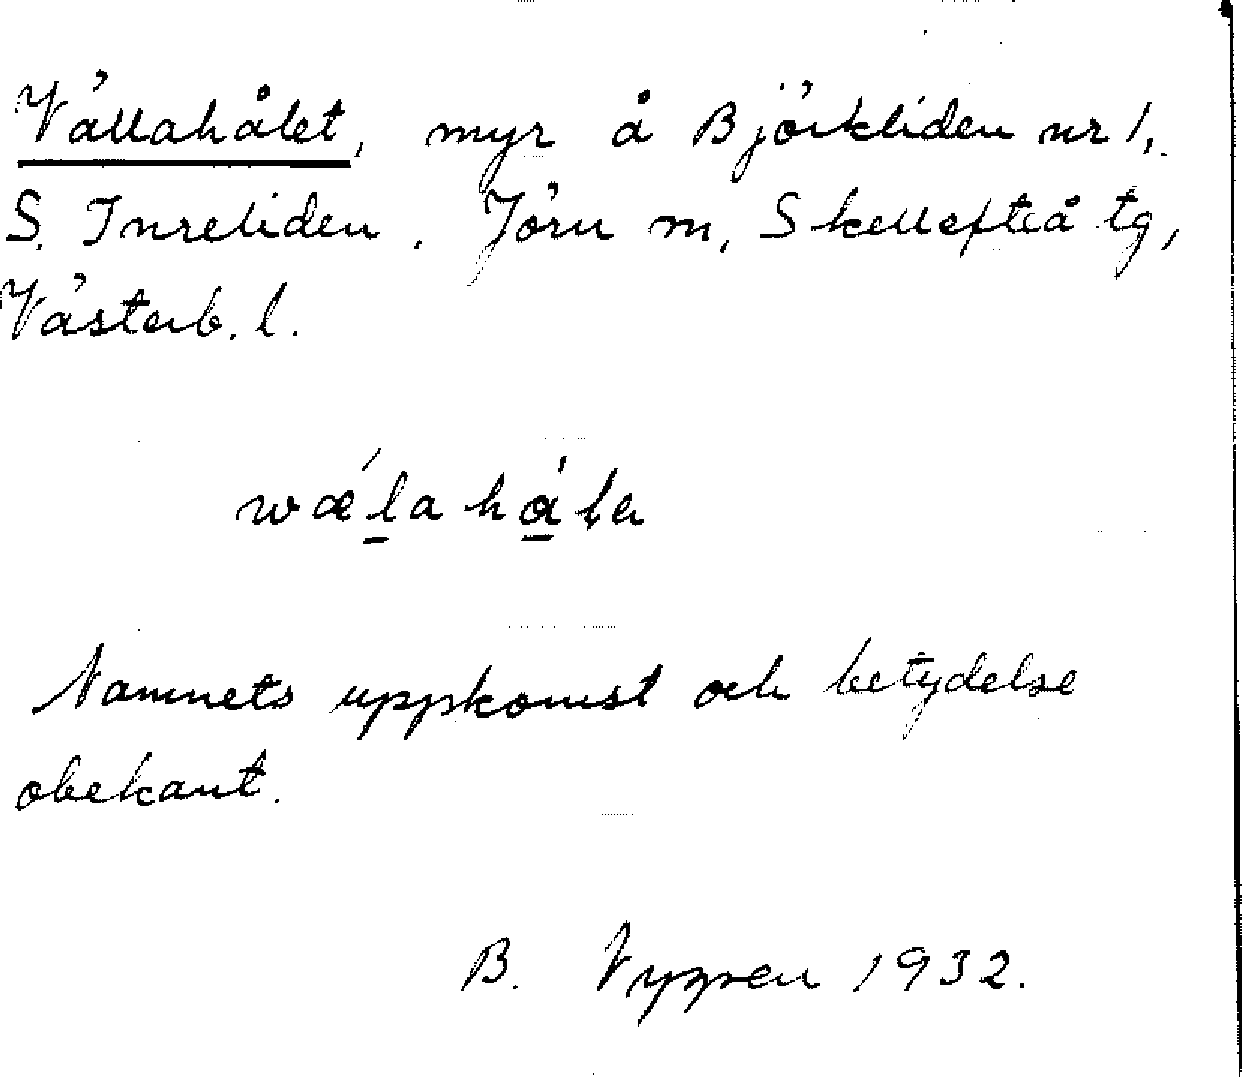 Vällahålet, myr å Björkliden nr 1,
S. Inreliden. Jörn sn, Skellefteå tg,
Västerb. l.
wǽla hǻla
Namnets uppkomst och betydelse
obekant.
B. 1932.